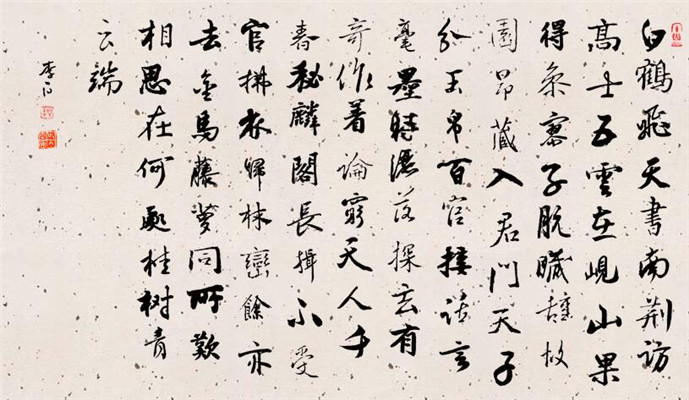 白鶴飛天書南荆訪
高士五雲在峴山果
得參寥子肮臟辭故
園昂藏入君門天子
分玉帛百官接話言
毫墨時灑落探玄有
奇作着論窮天人千
春秘麟閣長揖不受
官拂衣歸林巒餘亦
去金馬藤萝同所歡
相思在何處桂樹青
云端
李白